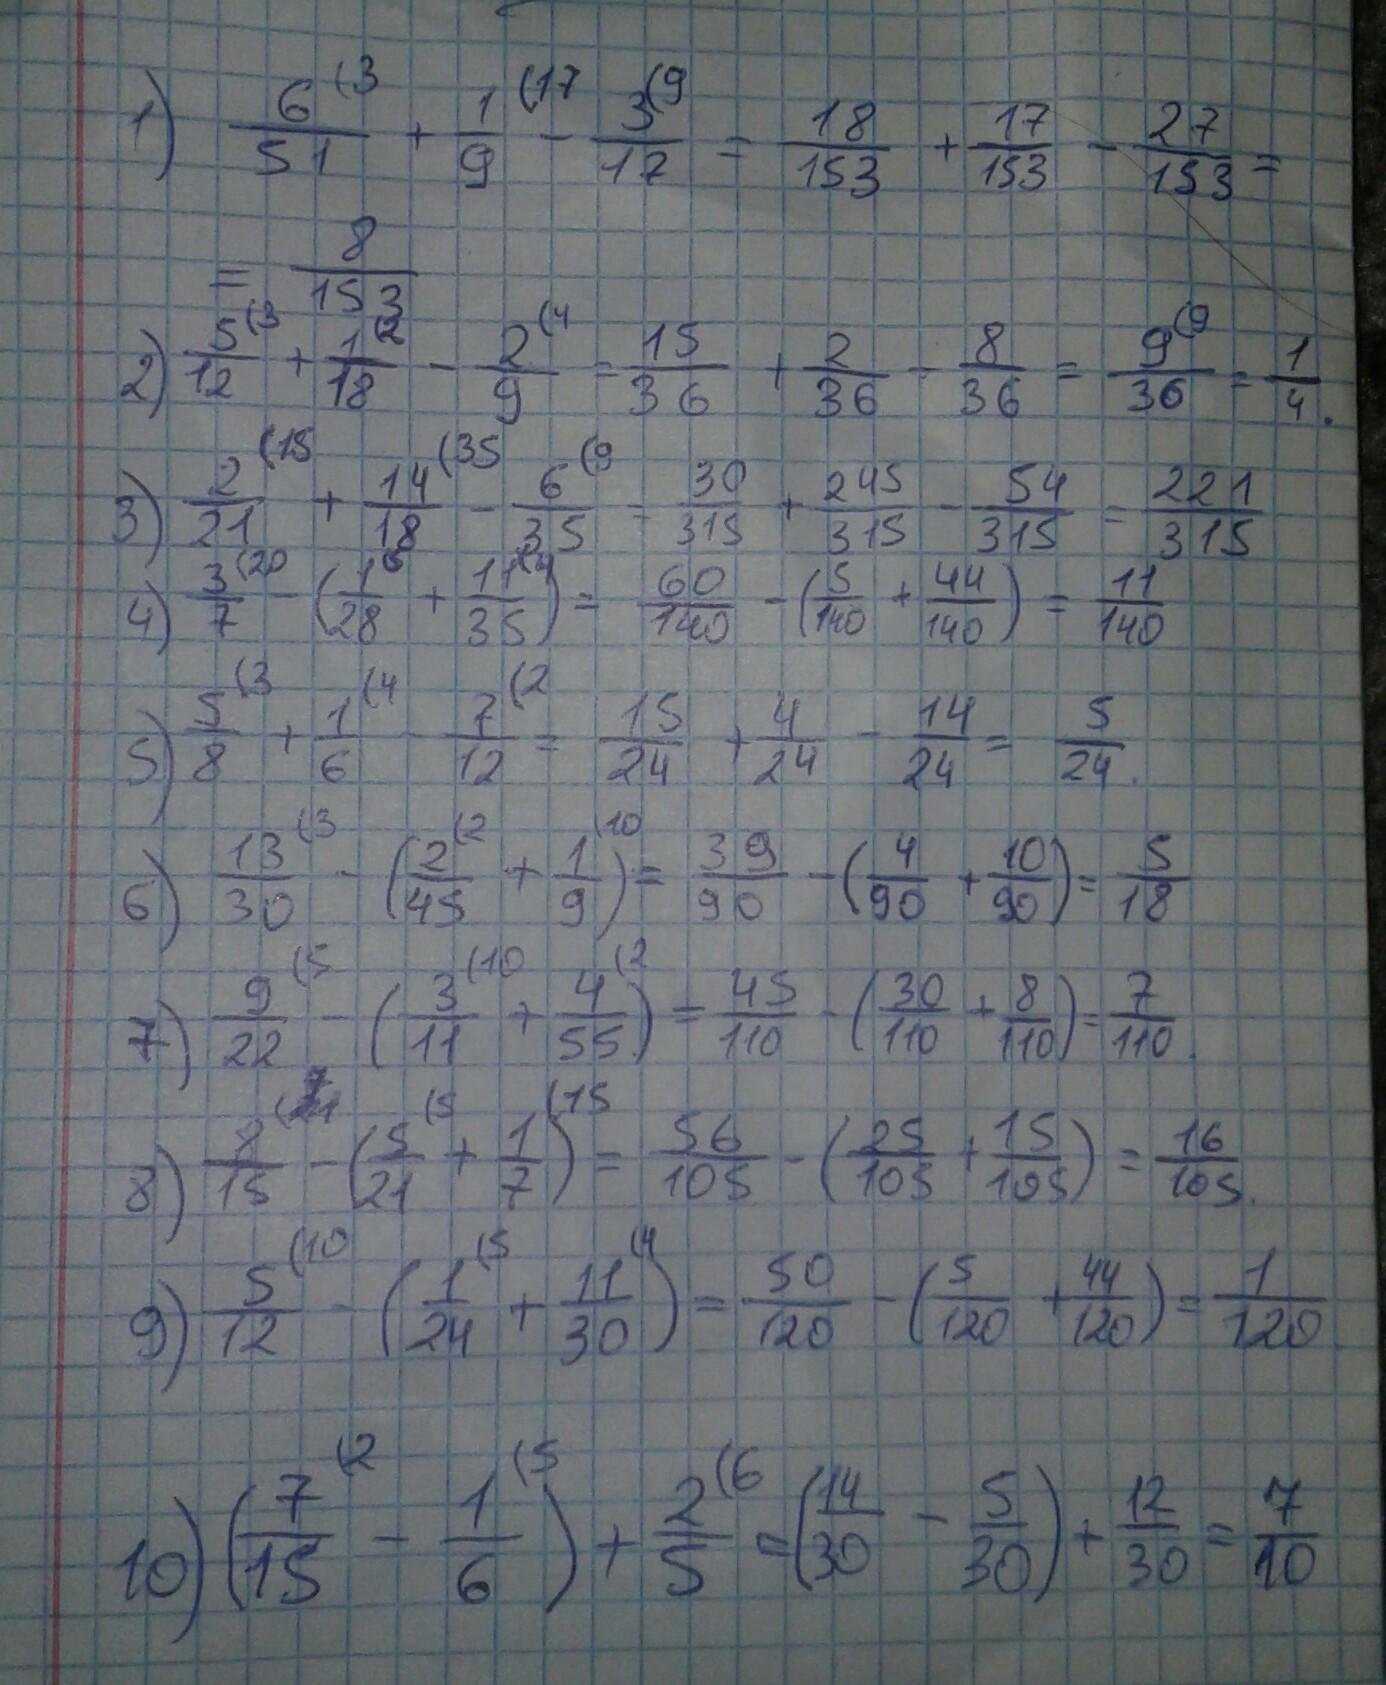 1) 6/51 (3 + 1/9 (17 - 3/17 (9 = 18/153 + 17/153 - 27/153 =
= 8/153
2) 5/12 (3 + 1/18 (2 - 2/9 (4 = 15/36 + 2/36 - 8/36 = 9/36 (9 = 1/4.
3) 2/21 (15 + 14/18 (35 - 6/35 (9 = 30/315 + 245/315 - 54/315 = 221/315
4) 3/7 (20 - (1/28 (5 + 11/35 (4) = 60/140 - (5/140 + 44/140) = 11/140
5) 5/8 (3 + 1/6 (4 - 7/12 (2 = 15/24 + 4/24 - 14/24 = 5/24.
6) 13/30 (3 - (2/45 (2 + 1/9 (10) = 39/90 - (4/90 + 10/90) = 5/18
7) 9/22 (5 - (3/11 (10 + 4/55 (2) = 45/110 - (30/110 + 8/110) = 7/110.
8) 8/15 (7 - (5/21 (5 + 1/7 (15) = 56/105 - (25/105 + 15/105) = 16/105.
9) 5/12 (10 - (1/24 (5 + 11/30 (4) = 50/120 - (5/120 + 44/120) = 1/120
10) (7/15 (2 - 1/6 (5) + 2/5 (6 = (14/30 - 5/30) + 12/30 = 7/10